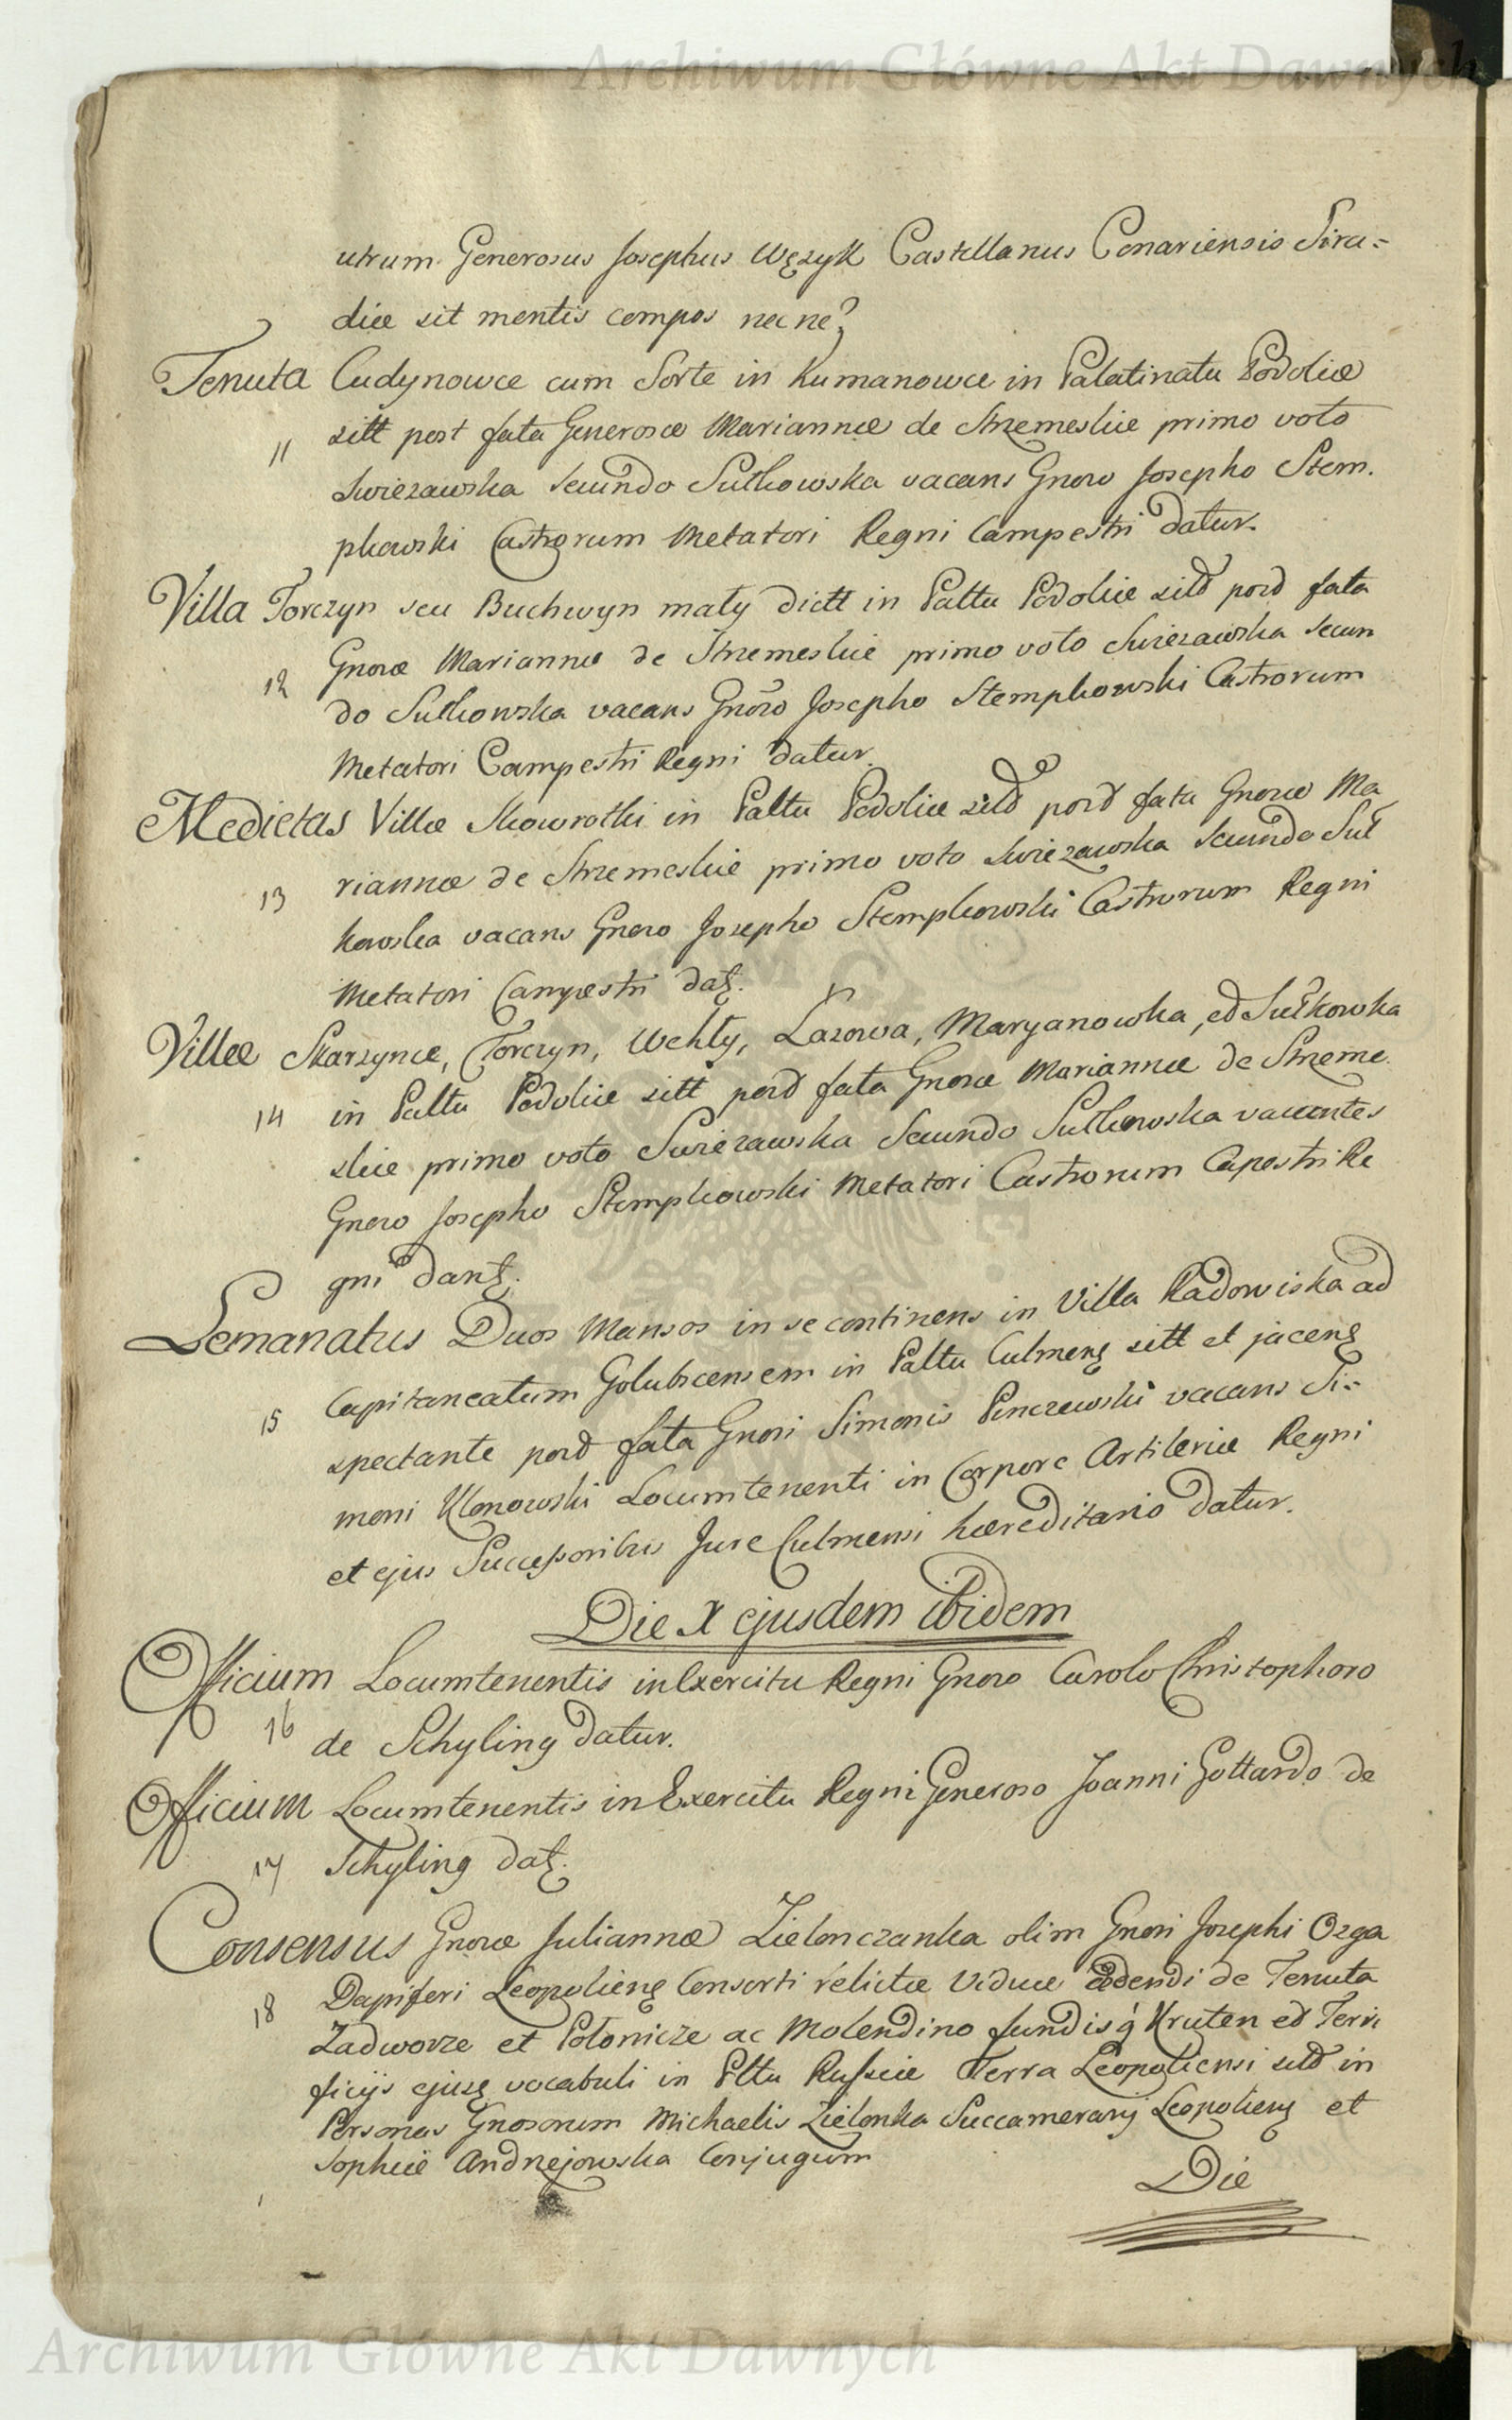 Archiwum Główne Akt Dawnych
utrum Generosus Josephus Wężyk Castellanus Conariensis Sira=
diæ sit mentis compos nec ne?
Tenuta Cudynowce cum Sorte in Kumanowce in Palatinatu Podoliæ
11 sitt post fata Generosæ Mariannæ de Strzemeskie primo voto
Swiezawska secundo Sułkowska vacans Gnoro Josepho Stem.
pkowski Castrorum Metatori Regni Campestri datur.
Villa Torczyn seu Buchwyn mały dictt in Palttu Podoliæ sitt post fata
12 Gnoræ Mariannæ de Strzemeskie primo voto Swiezawska secun
do Sułkowska vacans Gnoro Josepho Stempkowski Castrorum
Metatori Campestri Regni datur.
Medietas Villæ Skowrotki in Palttu Podoliæ sitt post fata Gnoræ Ma
13 riannæ de Strzemeskie primo voto Swiezawska secundo Suł
kowska vacans Gnoro Josepho Stempkowski Castrorum Regni
Metatori Campestri datȝ.
Villæ Skarzynce, Torczyn, Wchły, Łazowa, Maryanowka, et Sułkowka
14 in Palttu Podoliæ sitt post fata Gnoræ Mariannæ de Strzeme.
skie primo voto Swiezawska Secundo Sułkowska vacantes
Gnoro Josepho Stempkowski Metatori Castrorum Capestri Re
gni dantȝ.
Lemanatus Duos Mansos in se continens in Villa Radowiska ad
Capitaneatum Golubcensem in Palttu Culmenȝ sitt et jacenȝ
15 spectante post fata Gnori Simonis Penczewski vacans Si=
moni Klonowski Locumtenenti in Corpore Artileriæ Regni
et ejus Successoribus Jure Culmensi hæreditario datur.
Die X ejusdem ibidem
Officium Locumtenentis in Exercitu Regni Gnoro Carolo Christophoro
16 de Schyling datur.
Officium Locumtenentis in Exercitu Regni Generoso Joanni Gottardo de
17 Schyling datȝ.
Consensus Gnoræ Juliannæ Zielonczanka olim Gnori Josephi Ozga
18 Dapiferi Leopolienȝ Consorti relictæ Viduæ cedendi de Tenuta
Zadworze et Połonicze ac Molendino fundis q Kruten et Terri
ficijs ejusȝ vocabuli in Plttu Russiæ Terra Leopoliensi sitt in
Personas Gnosorum Michaelis Zielonka Succamerarij Leopolienȝ et
Sophiæ Andrzejowska Conjugum
Die
Archiwum Główne Akt Dawnych